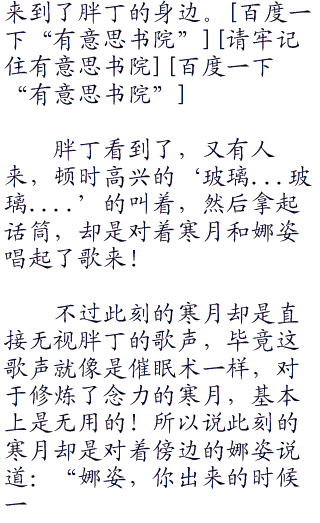 来到了胖丁的身边。[百度一
下“有意思书院”][请牢记
住有意思书院][百度一下
“有意思书院”]
胖丁看到了，又有人
来，顿时高兴的‘玻璃...玻
璃....’的叫着，然后拿起
话筒，却是对着寒月和娜姿
唱起了歌来！
不过此刻的寒月却是直
接无视胖丁的歌声，毕竟这
歌声就像是催眠术一样，对
于修炼了念力的寒月，基本
上是无用的！所以说此刻的
寒月却是对着傍边的娜姿说
道：“娜姿，你出来的时候
一